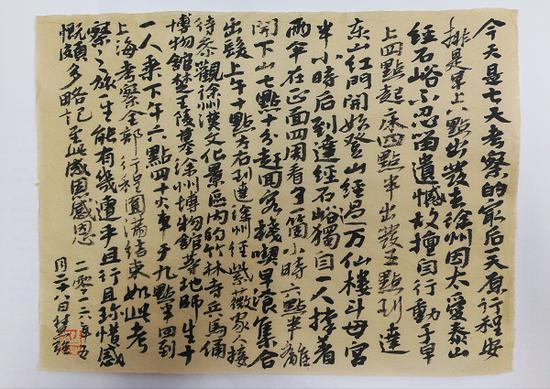 今天是七天考察的最后一天原行程安
排是早上八點出發去徐州因太愛泰山
經石峪不忍留遺憾故擅自行動于早
上四點起床四點半出發五點到達
泰山紅門開始登山經過万仙樓斗母宮
半小時后到達經石峪獨自一人撑着
雨伞在正面四周看了一個小時六點半離
開下山七點十分赶回客棧喫早湌集合
出發上午十點左右到達徐州經紫薇家人接
待参觀徐州漢文化景區内的竹林寺兵馬俑
博物館楚王陵墓徐州博物館等地師生十
一人乘下午六點四十六車于九點半回到
上海考察全部行程圓滿結束如此考
察之旅一生能有幾遭乎且行且珎惜感
慨頗多略記至此感恩感恩
二零二六年五
月二十八日